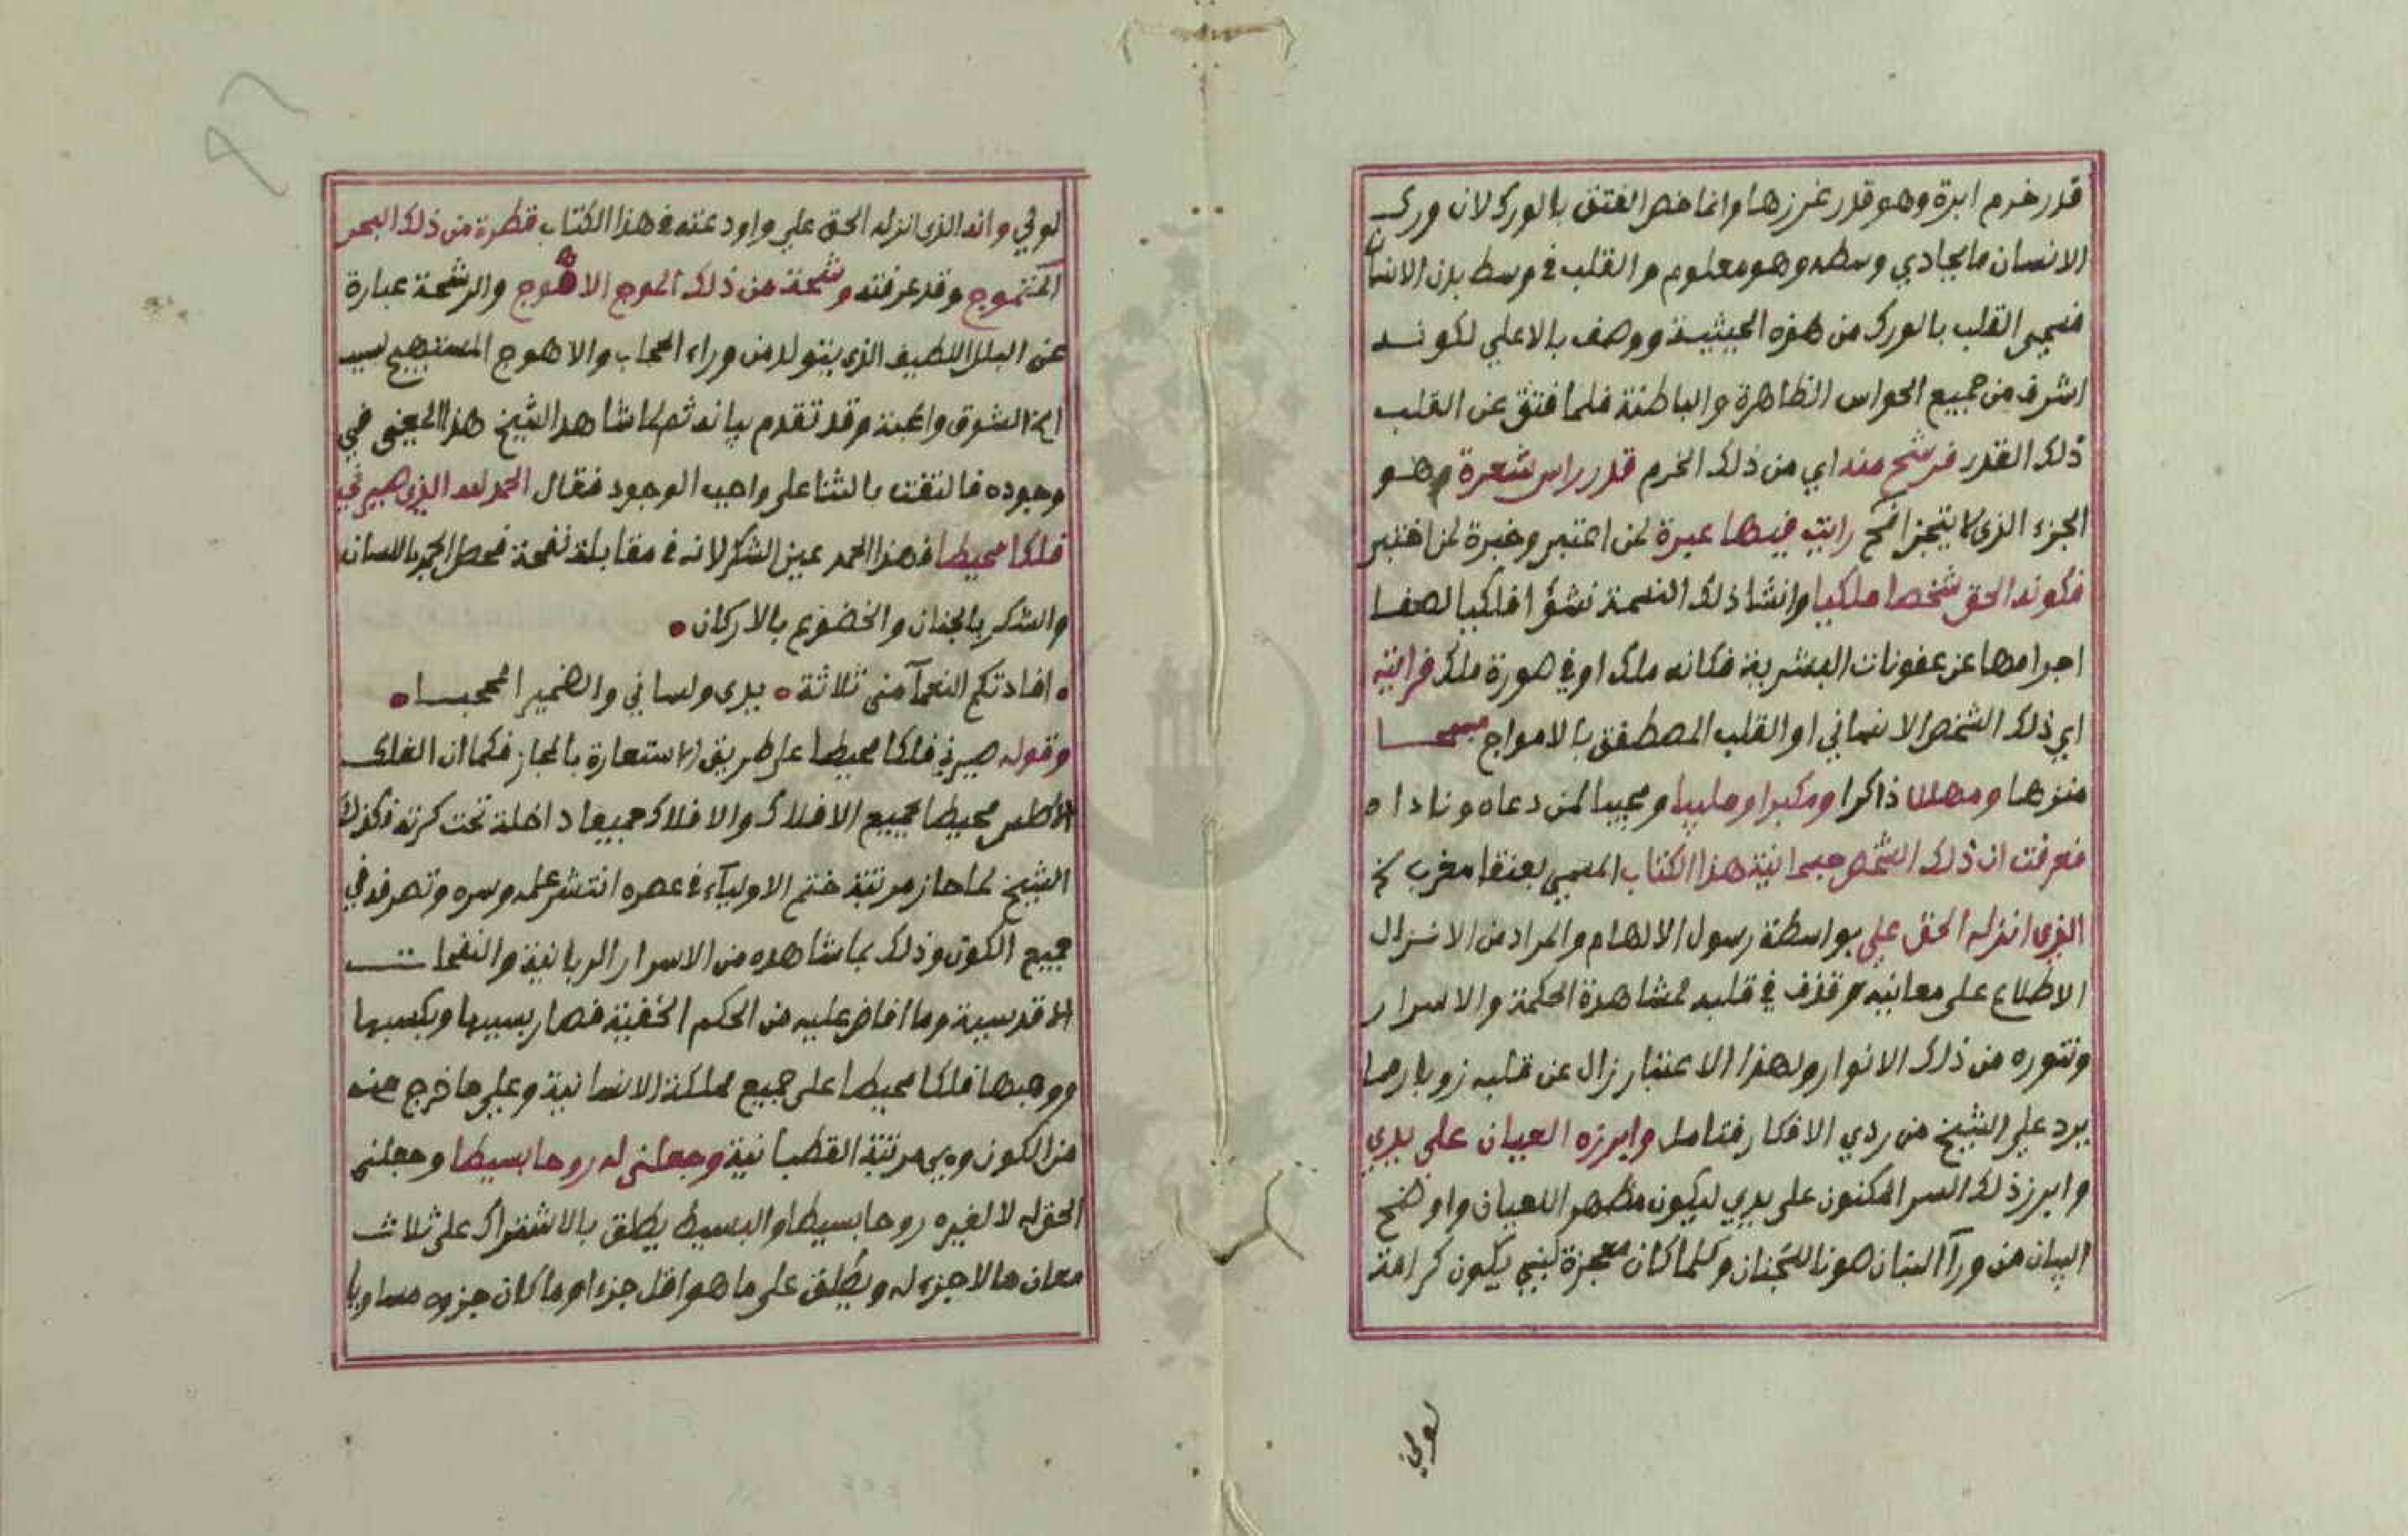 قدر خرم ابرة وهو قدر غرزها وانما خص الفتق بالورك لان ورك
الانسان ما يحادي وسطه وهو معلوم والقلب في وسط بدن الانسان
فسمي القلب بالورك من هذه الحيثية ووصف بالاعلي لكونه
اشرف من جميع الحواس الظاهرة والباطنة فلما فتق عن القلب
ذلك القدر فرشح منه اي من ذلك الخرم قدر راس شعرة وهو
الجزء الذى لا يتجزا رايت فيها عبرة لمن اعتبر وخبرة لمن اختبر
فكونه الحق شخصا ملكيا وانشا ذلك النسمة نشؤا فلكيا لصفا
اجرامها عن عفونات البشرية فكانه ملك او في صورة ملك فرايته
اي ذلك الشخص الانساني او القلب المصطفق بالامواج مسبحا
منزها ومهللا ذاكرا ومكبرا وملبيا ومجيبا لمن دعاه وناداه
فعرفت ان ذلك الشخص جسمانية هذا الكتاب المسمي بعنقا مغرب
الذى انزله الحق علي بواسطة رسول الالهام والمراد من الانزال
الاطلاع على معانيه وقذف في قلبه لمشاهدة الحكمة والاسرار
وتنوره من ذلك الانوار ولهذا الاعتبار زال عن قلبه
يرد علي الشيخ من ردي الافكار فتامل وابرزه العيان علي يدي
وابرز ذلك السر المكنون على يدي ليكون مظهرا للعيان واوضح
البيان من ورآ البنان صونا للجنان وكلما كان معجزة لنبي يكون كرامة
لولي
لولي وانه الذى انزله الحق علي واودعته في هذا الكتاب قطرة من ذلك البحر
المتموج وقد عرفته ورشحة من ذلك الموج الاهوج والرشحة عبارة
عن البلل اللطيف الذى يتولد من وراء الحجاب والاهوج المستهيج لسبب
الشوق والمحبة وقد تقدم بيانه ثم لما شاهد الشيخ هذا المعنى في
وجوده فالتفت بالثنا على واجب الوجود فقال الحمد لله الذى صيرني
فلكا محيطا فهذا الحمد عين الشكر لانه في مقابلة نفحة فحصل الحمد باللسان
والشكر بالجنان والخضوع بالاركان
افادتكم النعمآ منى ثلاثة يدى ولساني والضمير المحجبا
وقوله صيرني فلكا محيطا على طريق الاستعارة بالمجاز فكما ان الفلك
الاطلس محيطا بجميع الافلاك والافلاك جميعا داخلة تحت كرته فكذلك
الشيخ لما حاز مرتبة ختم الاوليآء في عصره انتشر علمه وسره وتصرفه في
جميع الكون وذلك بما شاهده من الاسرار الربانية والنفحات
الاقدسية وما افاض عليه من الحكم الخفية فصار بسببها وبكسبها
ووهبها فلكا محيطا على جميع مملكة الانسانية وعلي ما خرج عنه
من الكون وهي مرتبة القطبانية وجعلنى له روحا بسيطا وجعلنى
الحق له لا لغيره روحا بسيطا والبسيط يطلق بالاشتراك على ثلاث
معان مالا جزء له ويطلق على ما هو اقل جزءا وما كان جزوه مساويا